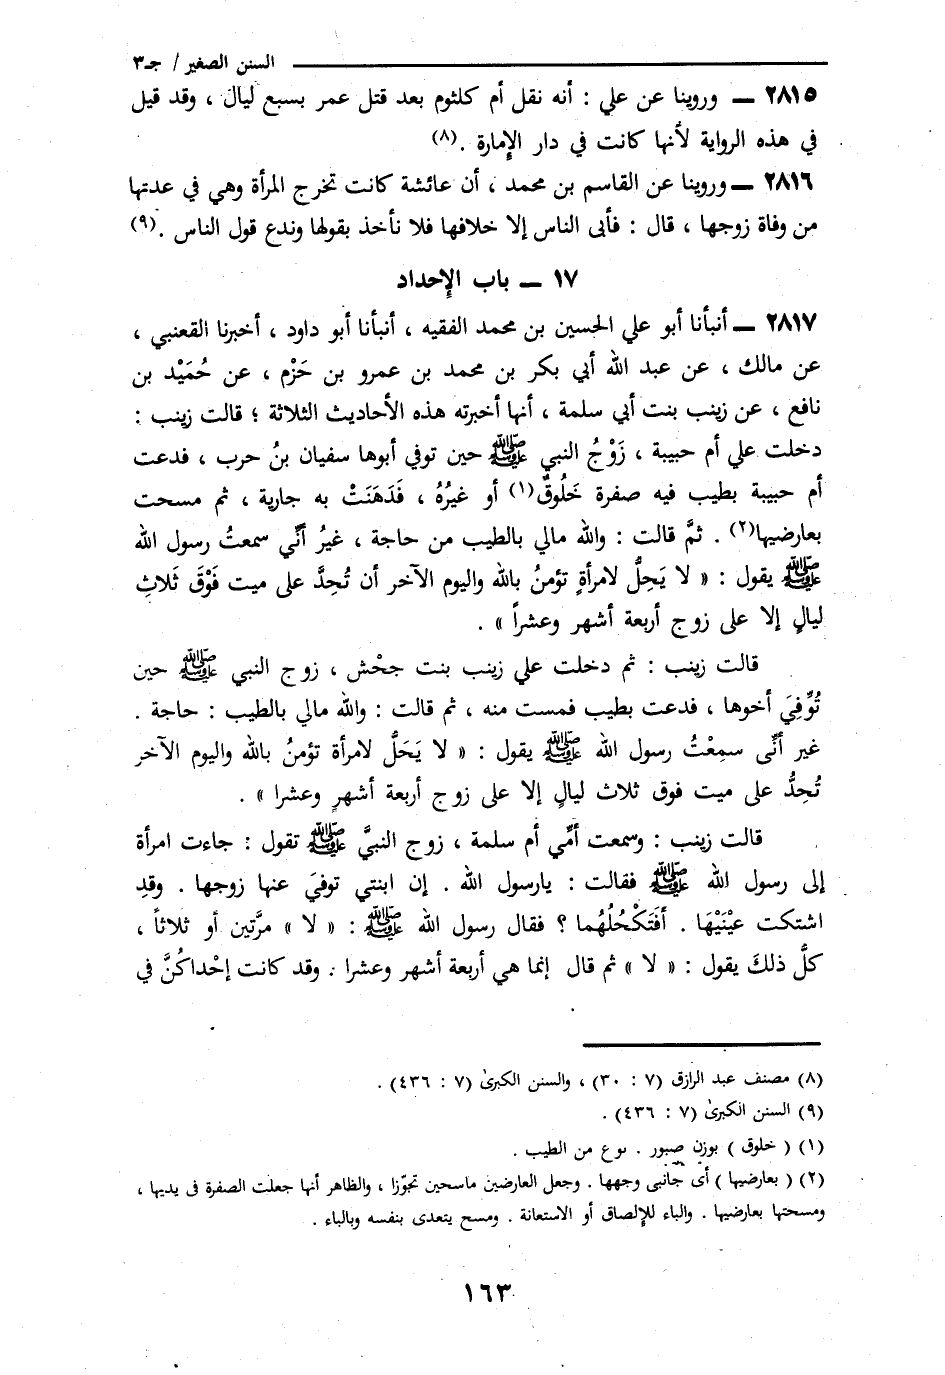 السنن الصغير / جـ٣
٢٨١٥ ــ وروينا عن علي : أنه نقل أم كلثوم بعد قتل عمر بسبع ليال ، وقد قيل
في هذه الرواية لأنها كانت في دار الإمارة .(٨)
٢٨١٦ ــ وروينا عن القاسم بن محمد ، أن عائشة كانت تخرج المرأة وهي في عدتها
من وفاة زوجها ، قال : فأبى الناس إلا خلافها فلا نأخذ بقولها وندع قول الناس .(٩)
١٧ ــ باب الإحداد
٢٨١٧ ــ أنبأنا أبو علي الحسين بن محمد الفقيه ، أنبأنا أبو داود ، أخبرنا القعنبي ،
عن مالك ، عن عبد الله أبي بكر بن محمد بن عمرو بن حَزْم ، عن حُمَيْد بن
نافع ، عن زينب بنت أبي سلمة ، أنها أخبرته هذه الأحاديث الثلاثة ؛ قالت زينب :
دخلت علي أم حبيبة ، زَوْجُ النبي ﷺ حين توفي أبوها سفيان بنُ حرب ، فدعت
أم حبيبة بطيب فيه صفرة خَلُوقٌ(١) أو غيرُهُ ، فَدَهَنَتْ به جارية ، ثم مسحت
بعارضيها(٢) . ثمَّ قالت : والله مالي بالطيب من حاجة ، غيرُ أنِّي سمعتُ رسول الله
ﷺ يقول : « لا يَحِلُّ لامرأةٍ تؤمنُ بالله واليوم الآخر أن تُحِدَّ على ميت فَوْقَ ثَلاثِ
ليالٍ إلا على زوج أربعة أشهر وعشراً » .
قالت زينب : ثم دخلت علي زينب بنت جحْش ، زوج النبي ﷺ حين
تُوِّفِيَ أخوها ، فدعت بطيب فمست منه ، ثم قالت : والله مالي بالطيب : حاجة .
غير أنِّى سمِعْتُ رسول الله ﷺ يقول : « لا يَحَلَّ لامرأة تؤمنُ بالله واليوم الآخر
تُحِدُّ على ميت فوق ثلاث ليالٍ إلا على زوج أربعة أشهرٍ وعشرا » .
قالت زينب : وسمعت أمِّي أم سلمة ، زوج النبيَّ ﷺ تقول : جاءت امرأة
إلى رسول الله ﷺ فقالت : يارسول الله . إن ابنتي توفيَ عنها زوجها . وقدِ
اشتكت عيْنَيْهَا . أفَتَكْحُلُهُما ؟ فقال رسول الله ﷺ : « لا » مرَّتين أو ثلاثاً ،
كلَّ ذلكَ يقول : « لا » ثم قال إنما هي أربعة أشهر وعشرا . وقد كانت إحْداكُنَّ في
(٨) مصنف عبد الرازق (٧ : ٣٠) ، والسنن الكبرىٰ (٧ : ٤٣٦) .
(٩) السنن الكبرىٰ (٧ : ٤٣٦) .
(١) ( خلوق ) بوزن صبور . نوع من الطيب .
(٢) ( بعارضيها ) أى جانبى وجهها . وجعل العارضين ماسحين تجوّزا ، والظاهر أنها جعلت الصفرة فى يديها ،
ومسحتها بعارضيها . والباء للإلصاق أو الاستعانة . ومسح يتعدى بنفسه وبالباء .
١٦٣